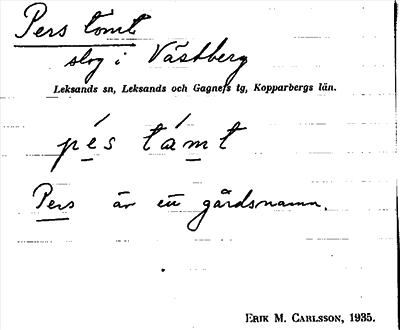 Pers tomt
slog i Västberg
Leksands sn, Leksands och Gagnefs tg, Kopparbergs län.
pés támt
Pers är ett gårdsnamn.
ERIK M. CARLSSON, 1935.